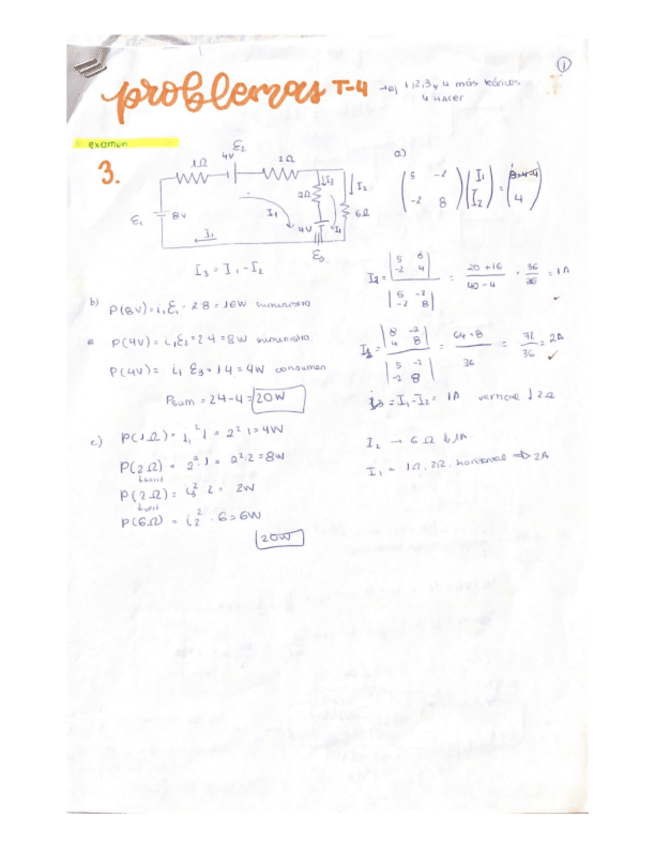 1
problemas T-4
1,2,3 y 4 más teóricos
4 HACER
examen
3.
1Ω
4V
E₂
2Ω
E₁
8V
I₁
I₁
2Ω
I₃
I₂
6Ω
4V
E₃
I₃ = I₁ - I₂
a)
(5 -2
-2 8)(I₁
I₂) = (
4)
I₂ = |5 8
-2 4| / |5 -2
-2 8| = 20+16 / 40-4 = 36/36 = 1A
I₁ = |8 -2
4 8| / |5 -2
-2 8| = 64+8 / 36 = 72/36 = 2A
I₃ = I₁-I₂ = 1A vertical ↓ 2Ω
I₂ → 6Ω ↓ 1A
I₁ = 1Ω, 2Ω, horizontal ⇒ 2A
b)
P(8V) = i₁ E₁ = 2·8 = 16W suministra
P(4V) = i₁E₂ = 2·4 = 8W suministra.
P(4V) = i₁ E₃ = 1·4 = 4W consumen
Psum = 24-4 = 20W
c)
P(1Ω) = i₁²·1 = 2²·1 = 4W
P(2Ω) = 2²·1 = 2²·2 = 8W
P(2Ω) = i₃²·2 = 2W
P(6Ω) = i₂²·6 = 6W
20W